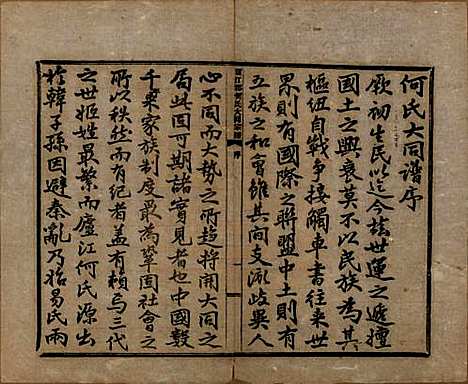 何氏大同譜序
厥初生民以迄今茲世運之遞嬗
國土之興衰莫不以民族為其
樞紐自戰爭接觸車書往來世
界則有國際之聯盟中土則有
五族之和會雖其向支派歧異人
廬江郡何氏大同宗譜 序
心不同而大勢之所趨將開大同之
局此固可期諸實見者也中國數
千年家族制度最為鞏固社會之
所以秩然而有紀者蓋有賴焉三代
之世姬姓最繁而廬江何氏源出
於韓子孫因避秦亂乃始易氏兩